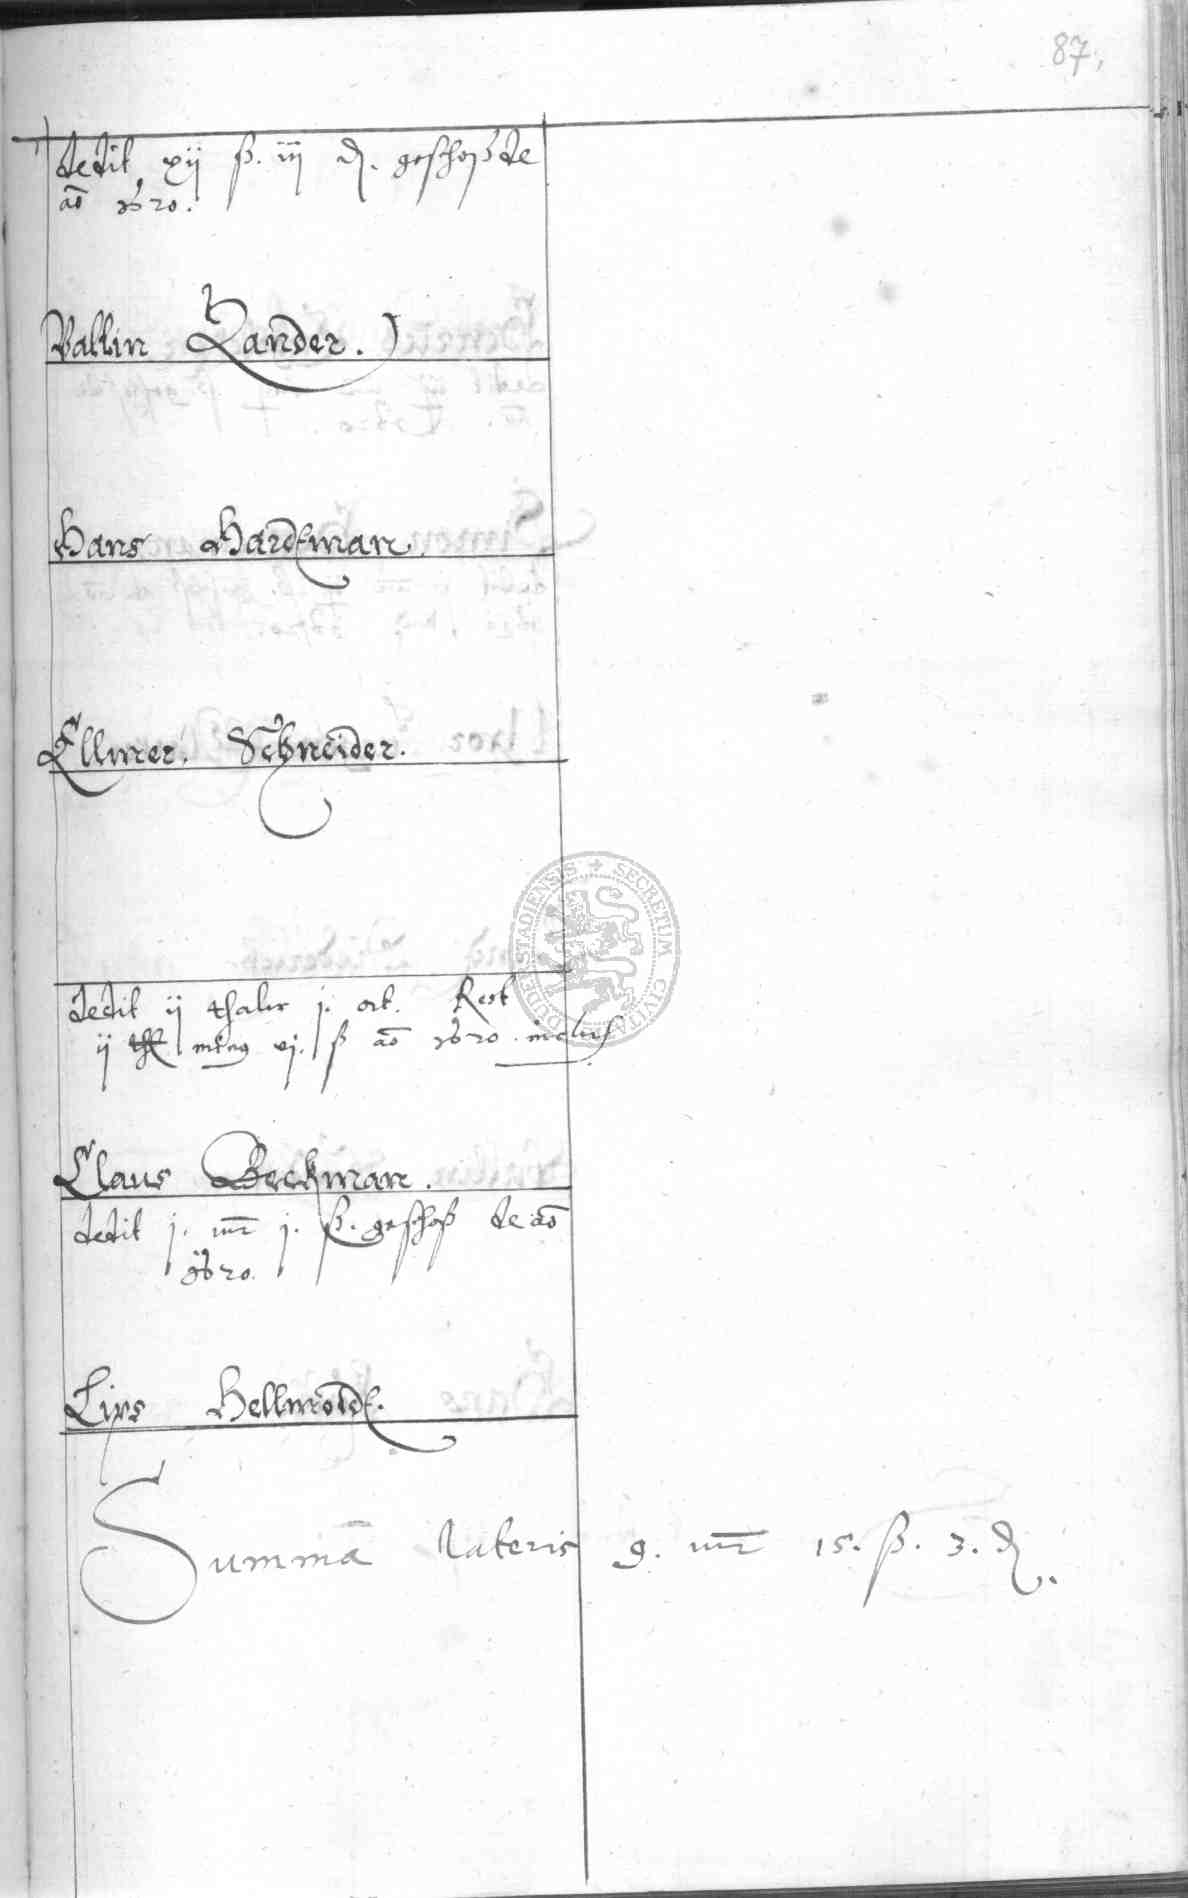 87.
dedit xij ß. iij ₰. geschoß de
ao 1620.
Valtin Zander.
Hans Hardman.
Ellmer Schneider.
dedit ij thaler j. ort. Rest
ij minus vj. ß ao 1620. inclus
Claus Beckman.
dedit j. mr j. ß. geschoß de ao
1620.
Lips Hellmoldt.
Summa lateris 9. mr 15. ß. 3. ₰.
SECRETUM CIVITATIS DUDERSTADIENSIS